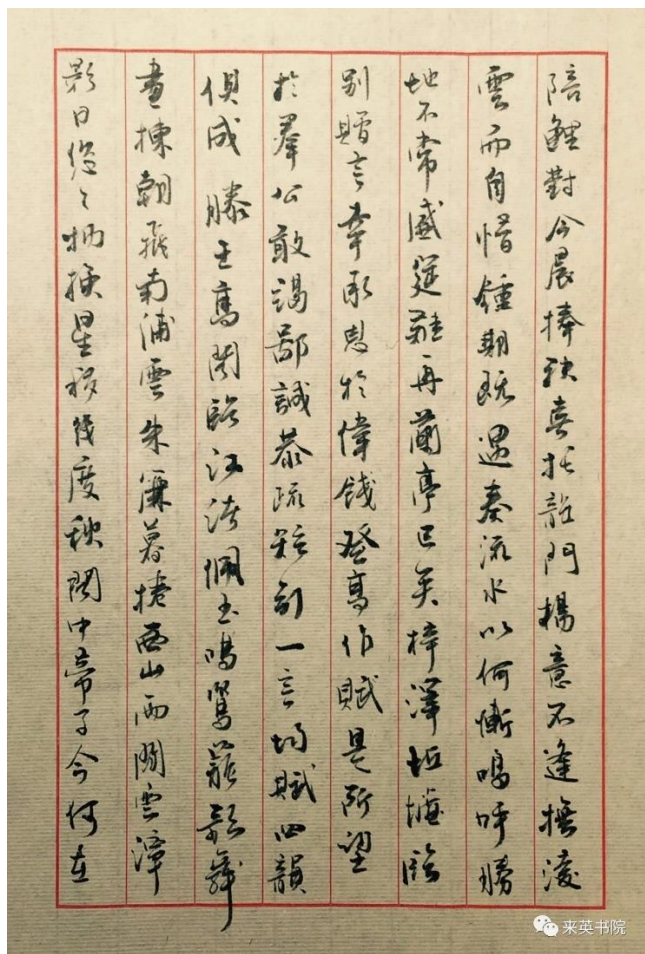 陪鯉對今晨捧袂喜托龍門楊意不逢撫凌
雲而自惜鍾期既遇奏流水以何慚嗚呼勝
地不常盛筵難再蘭亭已矣梓澤坵墟臨
別贈言幸承恩於偉餞登高作賦是所望
於羣公敢竭鄙誠恭疏短引一言均賦四韻
俱成滕王高閣臨江渚佩玉鳴鸞罷歌舞
畫棟朝飛南浦雲朱簾暮捲西山雨閒雲潭
影日悠々物換星移幾度秋閣中帝子今何在
来英书院